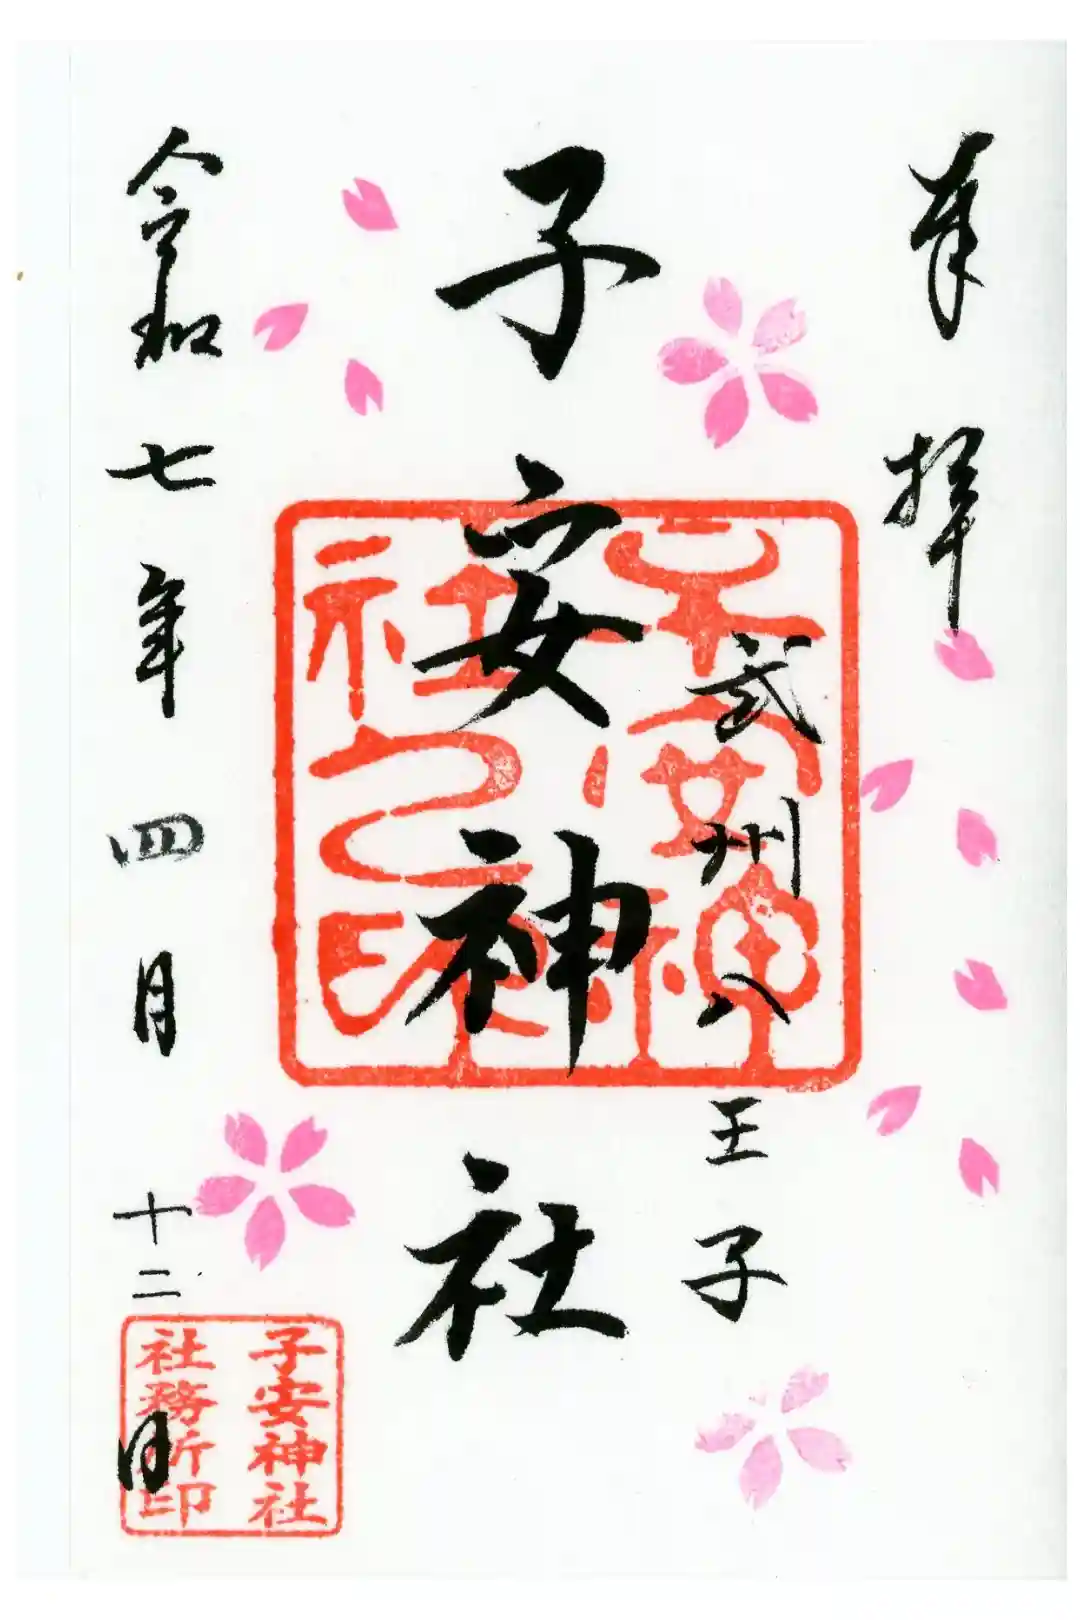 奉拝
武州八王子
子安神社
令和七年四月十二日
子安神社之印
子安神社
社務所印